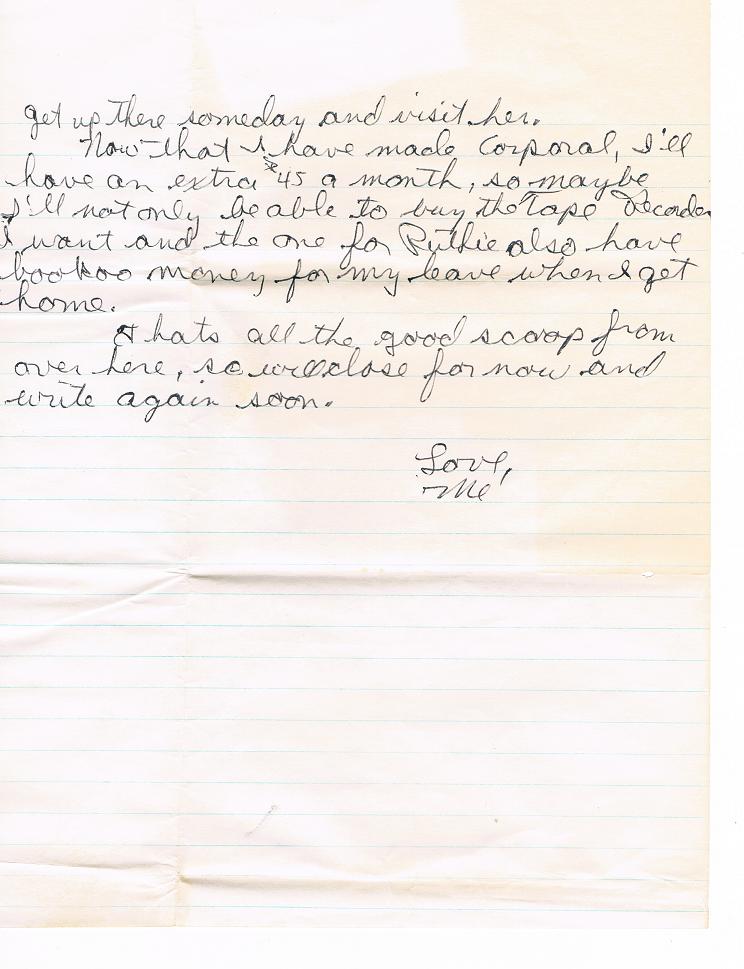 get up there someday and visit her.
Now that I have made Corporal, I'll
have an extra $45 a month, so maybe
I'll not only be able to buy the Tape Recorder
I want and the one for Ruthie also have
bookoo money for my leave when I get
home.
Thats all the good scoop from
over here, so will close for now and
write again soon.
Love,
Me